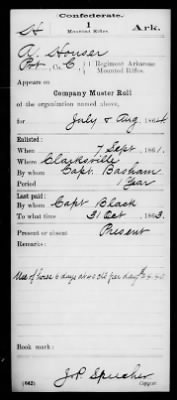 Confederate.
H 1 Ark.
Mounted Rifles.
A. Houser
Pvt, Co. C, 1 Regiment Arkansas
Mounted Rifles.
Appears on
Company Muster Roll
of the organization named above,
for July & Aug, 1864
Enlisted:
When 7 Sept, 1861.
Where Clarksville
By whom Capt. Basham
Period 1 Year
Last paid:
By whom Capt Black
To what time 31 Oct, 1863.
Present or absent Present
Remarks:
Use of horse 6 days at 40 cts per day $2.40
Book mark:
J.P. Speicher
(642) Copyist.